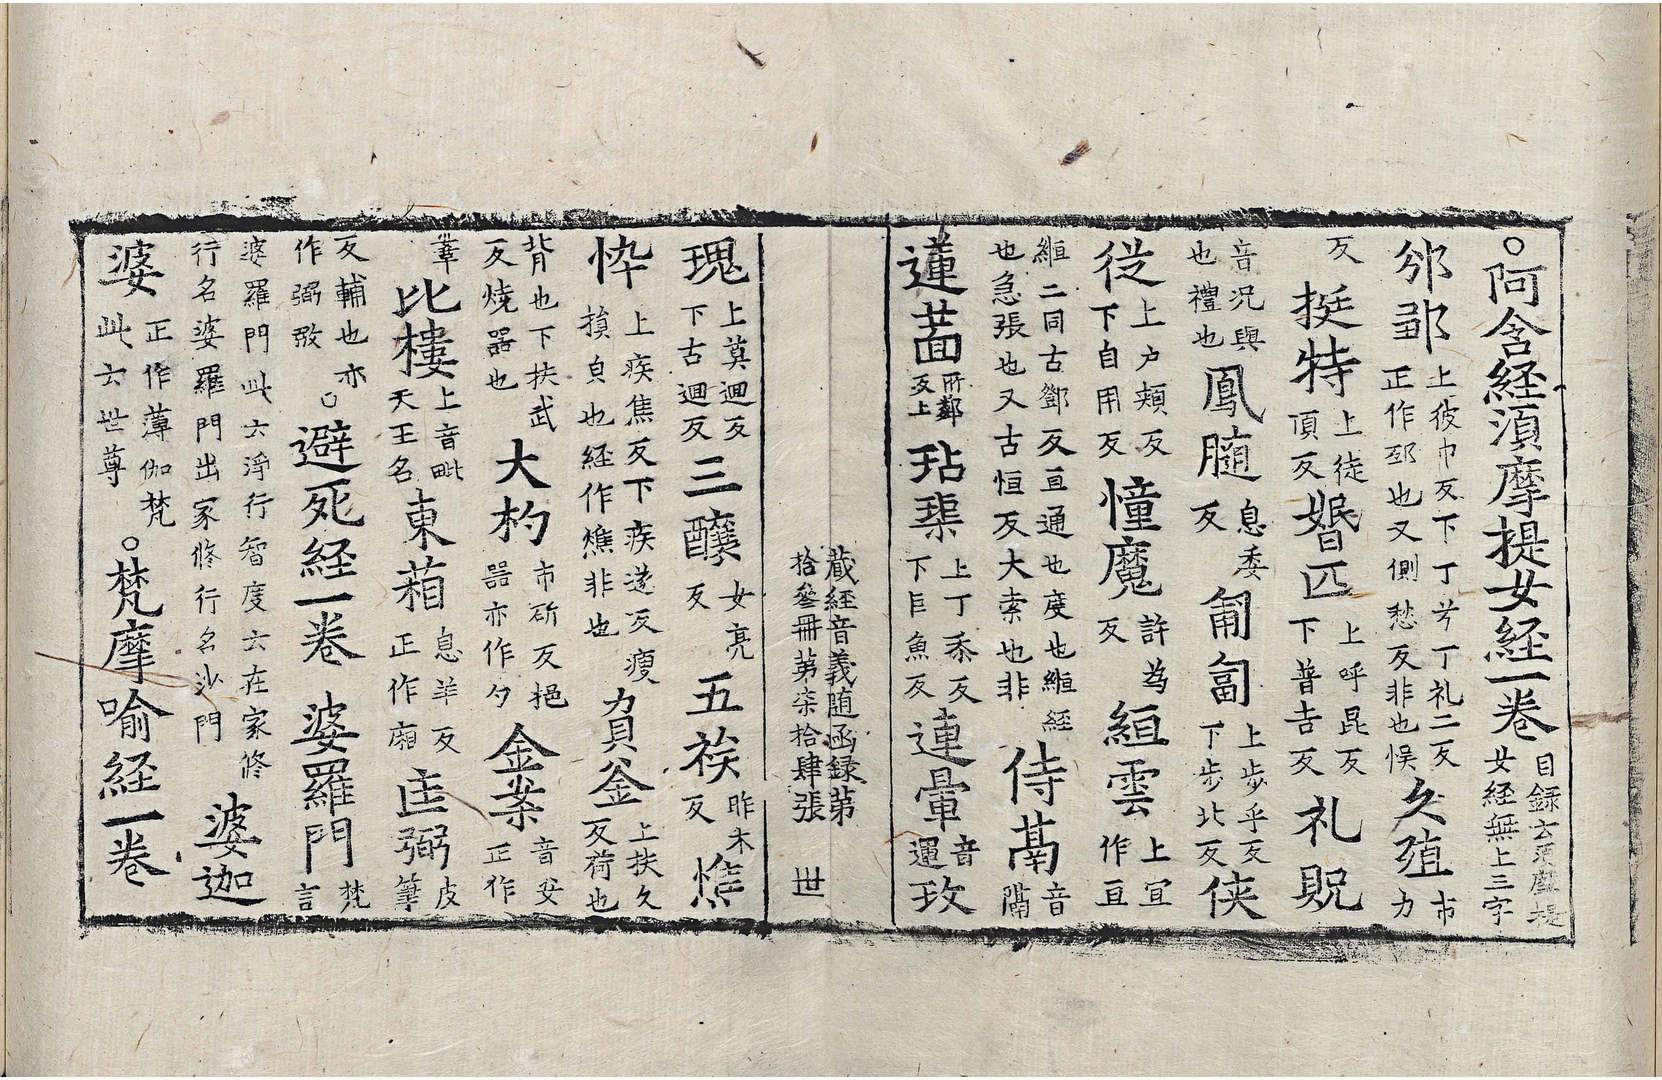 ○阿含経湏摩提女経一卷 目録云湏摩提女経無上三字
邠䣅 上彼巾反下丁兮丁礼二反正作邳也又側愁反非也悮 久殖 市力
反 挺特 上徒頂反 㛰匹 上呼昆反下普吉反 礼貺
音况與也禮也 鳳髄 息委反 匍匐 上步乎反下步北反 侠
従 上户頰反下自用反 憧魔 許為反 絙雲 上宜作亘
絙二同古鄧反亘通也度也絙経也急張也又古恒反大索也非 侍鬲 音隔
蓮 所鄰反上 玷璖 上丁忝反下巨魚反 連暈 音運 玫
蔵経音義随函録第拾叁冊苐柒拾肆張 丗
瑰 上莫廻反下古廻反 三釀 女亮反 五族 昨木反 憔
悴 上疾焦反下疾遂反瘦損皃也経作燋非也 負釜 上扶久反荷也
背也下扶武反燒器也 大杓 市斫反挹器亦作勺 金䒨 音父正作
䒨 比樓 上音毗天王名 東葙 息羊反正作廂 𠯁弼 皮筆
反輔也亦作弼㢸 ○避死経一卷 婆羅門 梵言
婆羅門此云淨行智度云在家修行名婆羅門出家修行名沙門 婆迦
婆 正作薄伽梵此云世尊 ○梵摩喻経一卷